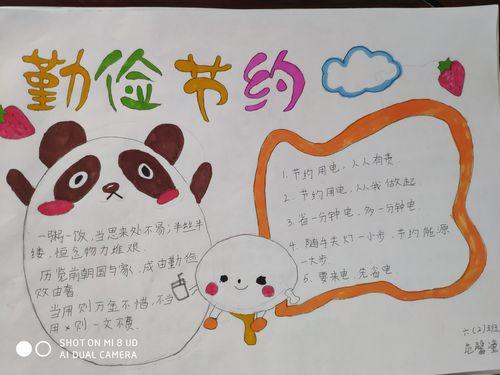 勤俭节约
一粥一饭,当思来处不易;半丝半
缕,恒念物力维艰.
历览前朝国与家,成由勤俭
败由奢
当用则万金不惜,不当
用×则一文不费.
1. 节约用电,人人有责
2. 节约用电,从我做起
3. 省一分钟电,多一分钟电.
4. 随手关灯一小步,节约能源
一大步
5. 要来电,先省电
六(2)班
SHOT ON MI 8 UD
AI DUAL CAMERA